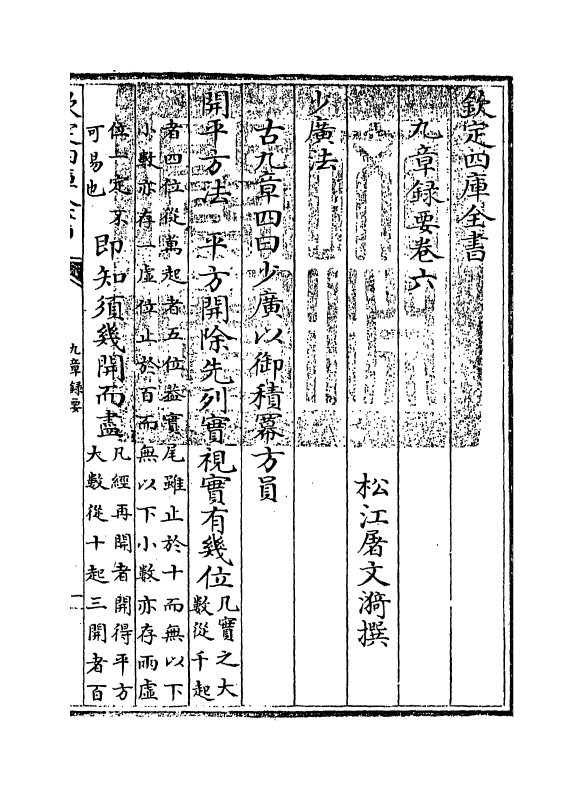 欽定四庫全書
九章録要卷六
松江屠文漪撰
少廣法
古九章四曰少廣以御積冪方員
開平方法 平方開除先列實視實有幾位
凡實之大
數從千起
者四位從萬起者五位葢實尾雖止於十而無以下
小數亦存一虛位止於百而無以下小數亦存兩虛
位一定不
可易也
即知須幾開而盡
凡經再開者開得平方
大數從十起三開者百
九章録要
一